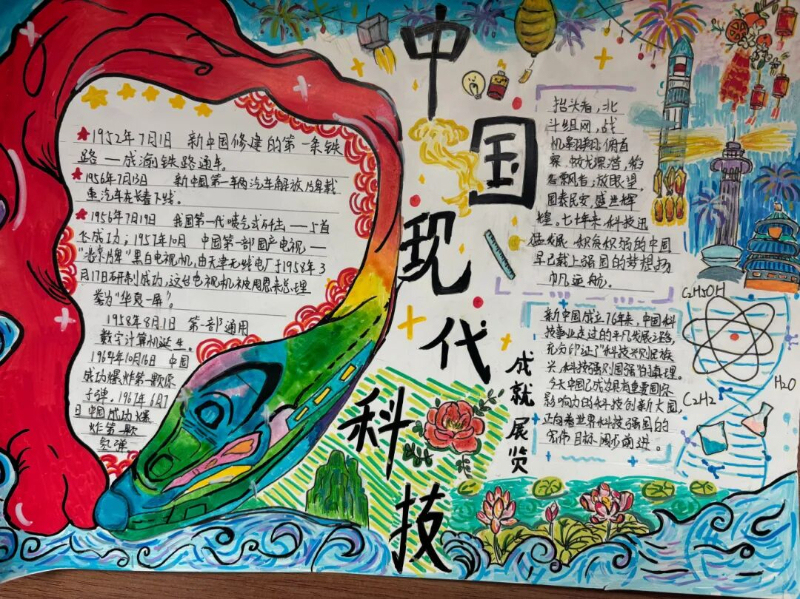 中国现代科技
成就展览
1952年7月1日 新中国修建的第一条铁
路——成渝铁路通车。
1956年7月13日 新中国第一辆汽车解放牌载
重汽车在长春下线。
1956年7月19日 我国第一代喷气式歼击——5首
飞成功；1957年10月 中国第一部国产电视——
牌"黑白电视机,由天津无线电厂于1958年3
月17日研制成功,这台电视机被周恩来总理
誉为"华夏一屏"。
1958年8月1日 第一部通用
数字计算机诞生。
1964年10月16日 中国
成功爆炸第一颗原
子弹。1967年6月7
日中国成功爆
炸第一颗
氢弹
抬头看,北
斗组网,战
机翱翔;俯首
察
飘香;放眼望,
国泰民安,盛世辉
煌。七十年来,科技迅
猛发展,积贫积弱的中国
早已载上强国的梦想扬
帆远航。
新中国成立76年来,中国科
技事业走过的平凡发展之路,
充分印证了科技兴则民族
兴,科技强则国强的真理。
今天中国已成为具有重要国际
影响力的科技创新大国,
正向着世界科技强国的
宏伟目标阔步前进。
C₂H₅OH
H₂O
C₂H₂